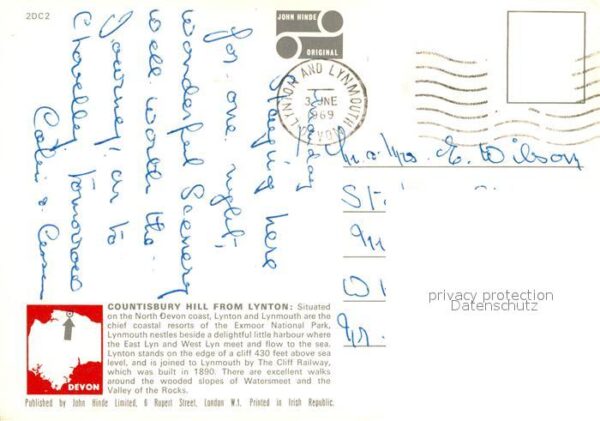 2DC2
JOHN HINDE
ORIGINAL
LYNTON AND LYNMOUTH
3 JUNE
1969
DEVON
Monday
Staying here
for one night,
wonderful Scenery
well worth the
Journey! on to
Clovelly tomorrow
Colin &
Mr & Mrs. E. Wilson
privacy protection
Datenschutz
COUNTISBURY HILL FROM LYNTON: Situated
on the North Devon coast, Lynton and Lynmouth are
the chief coastal resorts of the Exmoor National Park,
Lynmouth nestles beside a delightful little harbour where
the East Lyn and West Lyn meet and flow to the sea.
Lynton stands on the edge of a cliff 430 feet above sea
level, and is joined to Lynmouth by The Cliff Railway,
which was built in 1890. There are excellent walks
around the wooded slopes of Watersmeet and the
Valley of the Rocks.
DEVON
Published by John Hinde Limited, 6 Rupert Street, London W.1. Printed in Irish Republic.